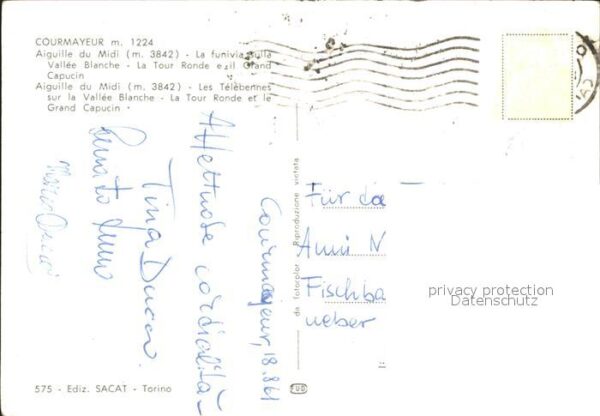 COURMAYEUR m. 1224
Aiguille du Midi (m. 3842) - La funivia sulla
Vallée Blanche - La Tour Ronde e il Grand
Capucin
Aiguille du Midi (m. 3842) - Les Télébennes
sur la Vallée Blanche - La Tour Ronde et le
Grand Capucin
Courmayeur, 18.8.61
Affettuose cordialità
Tina
Renato
da fotocolor - Riproduzione vietata
Für da
Anni N
Fischba
ueber
privacy protection
Datenschutz
575 - Ediz. SACAT - Torino